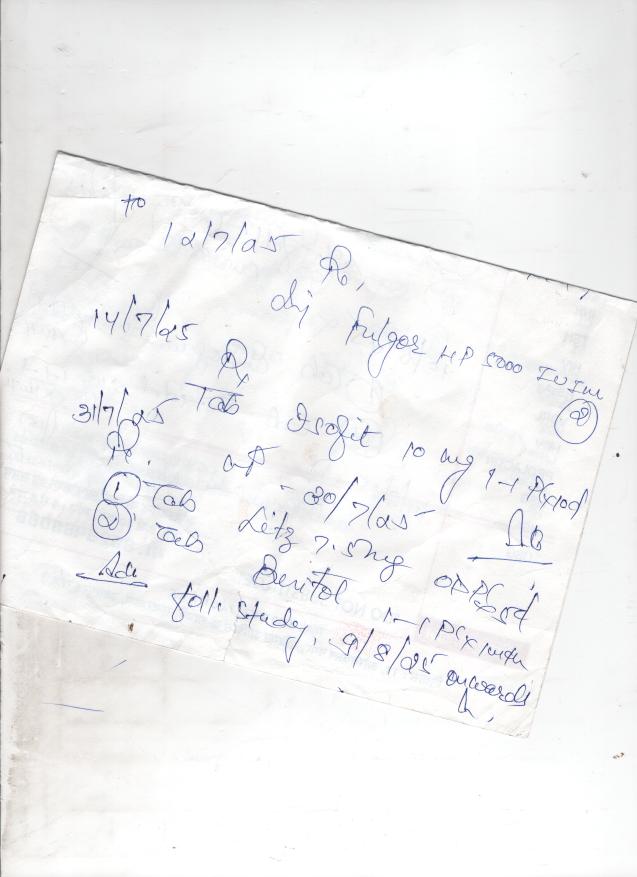 12/7/25 Rx,
Inj Fulgor HP 5000 IU Im
②
14/7/25
Rx
Tab Isofit 10 mg 1-1 P(x10d
- 30/7/25
31/7/25
Rx.
① Tab Letz 7.5mg OD P(x5d
② Tab Benitol 1-1 P(x1mth
Adv foll. study, 9/8/25 onwards